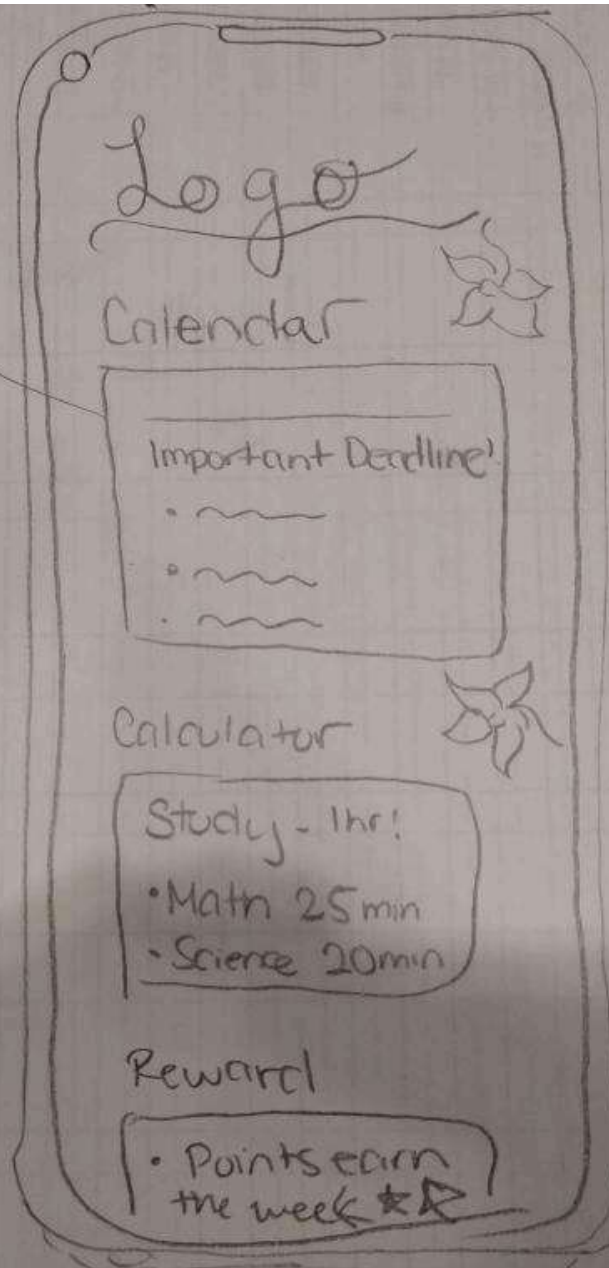 Logo
Calendar
Important Deadline!
Calculator
Study - 1hr!
• Math 25 min
• Science 20min
Reward
• Points earn
the week